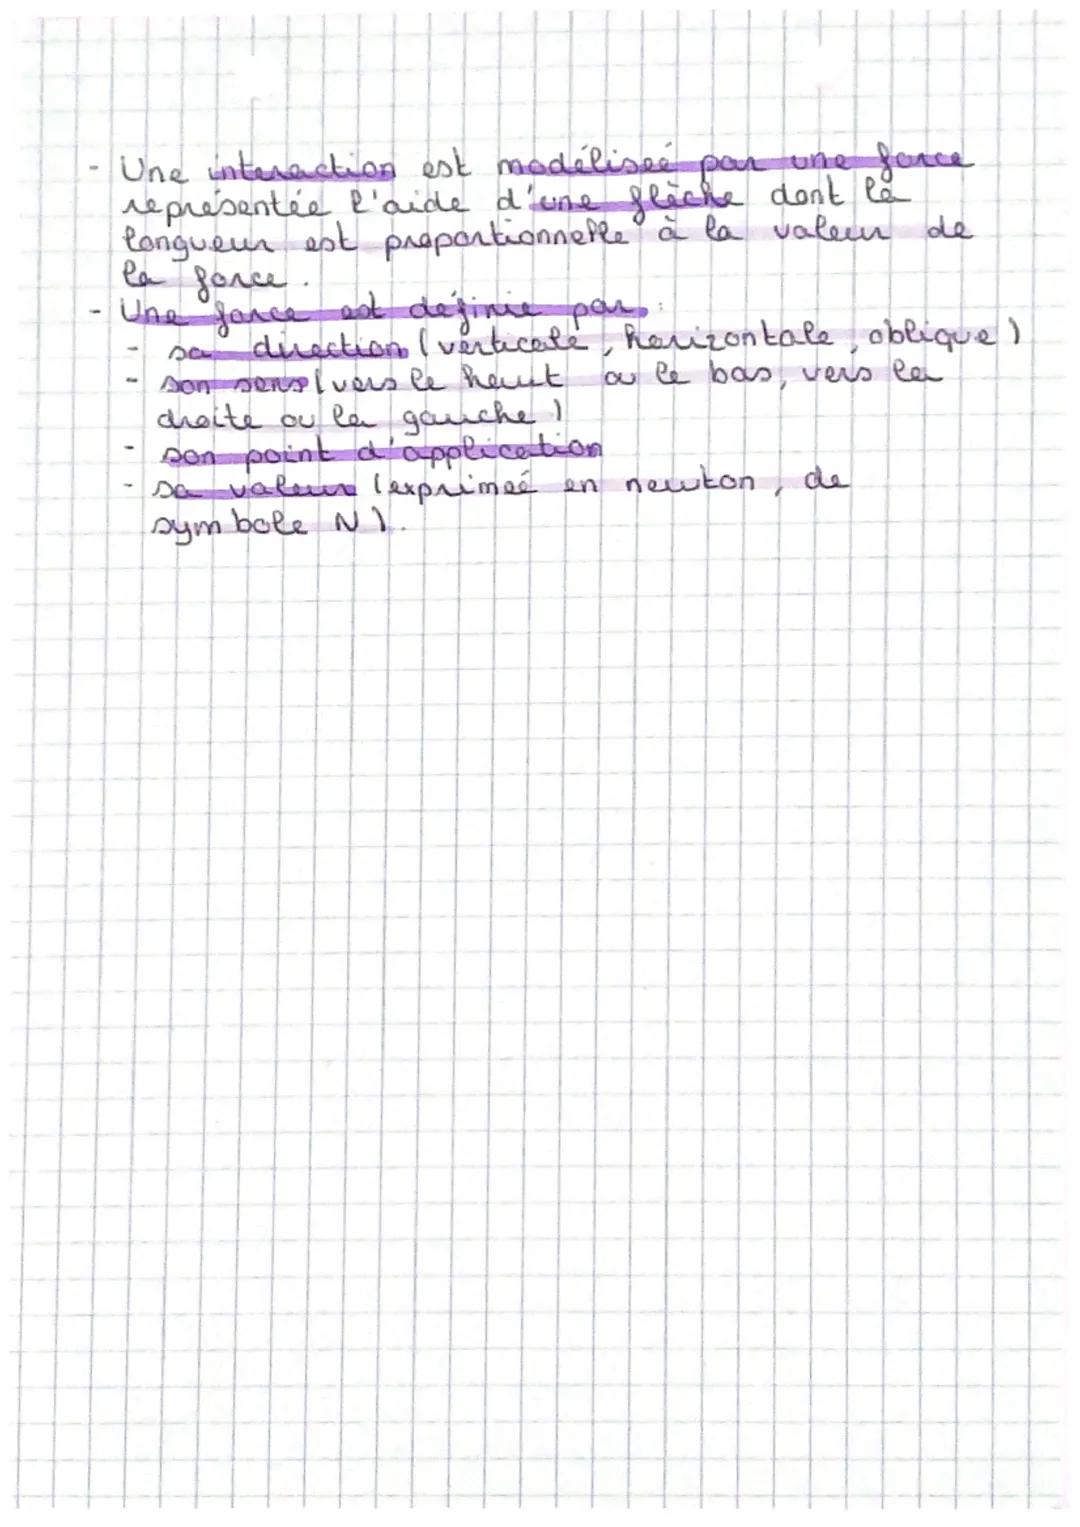 - Une interaction est modélisée par une force
représentée l'aide d'une flèche dont la
longueur est proportionnelle à la valeur de
la force.
- Une force est définie par :
- sa direction (verticale, horizontale, oblique)
- son sens (vers le haut ou le bas, vers la
droite ou la gauche)
- son point d'application
- sa valeur (exprimée en newton, de
symbole N).